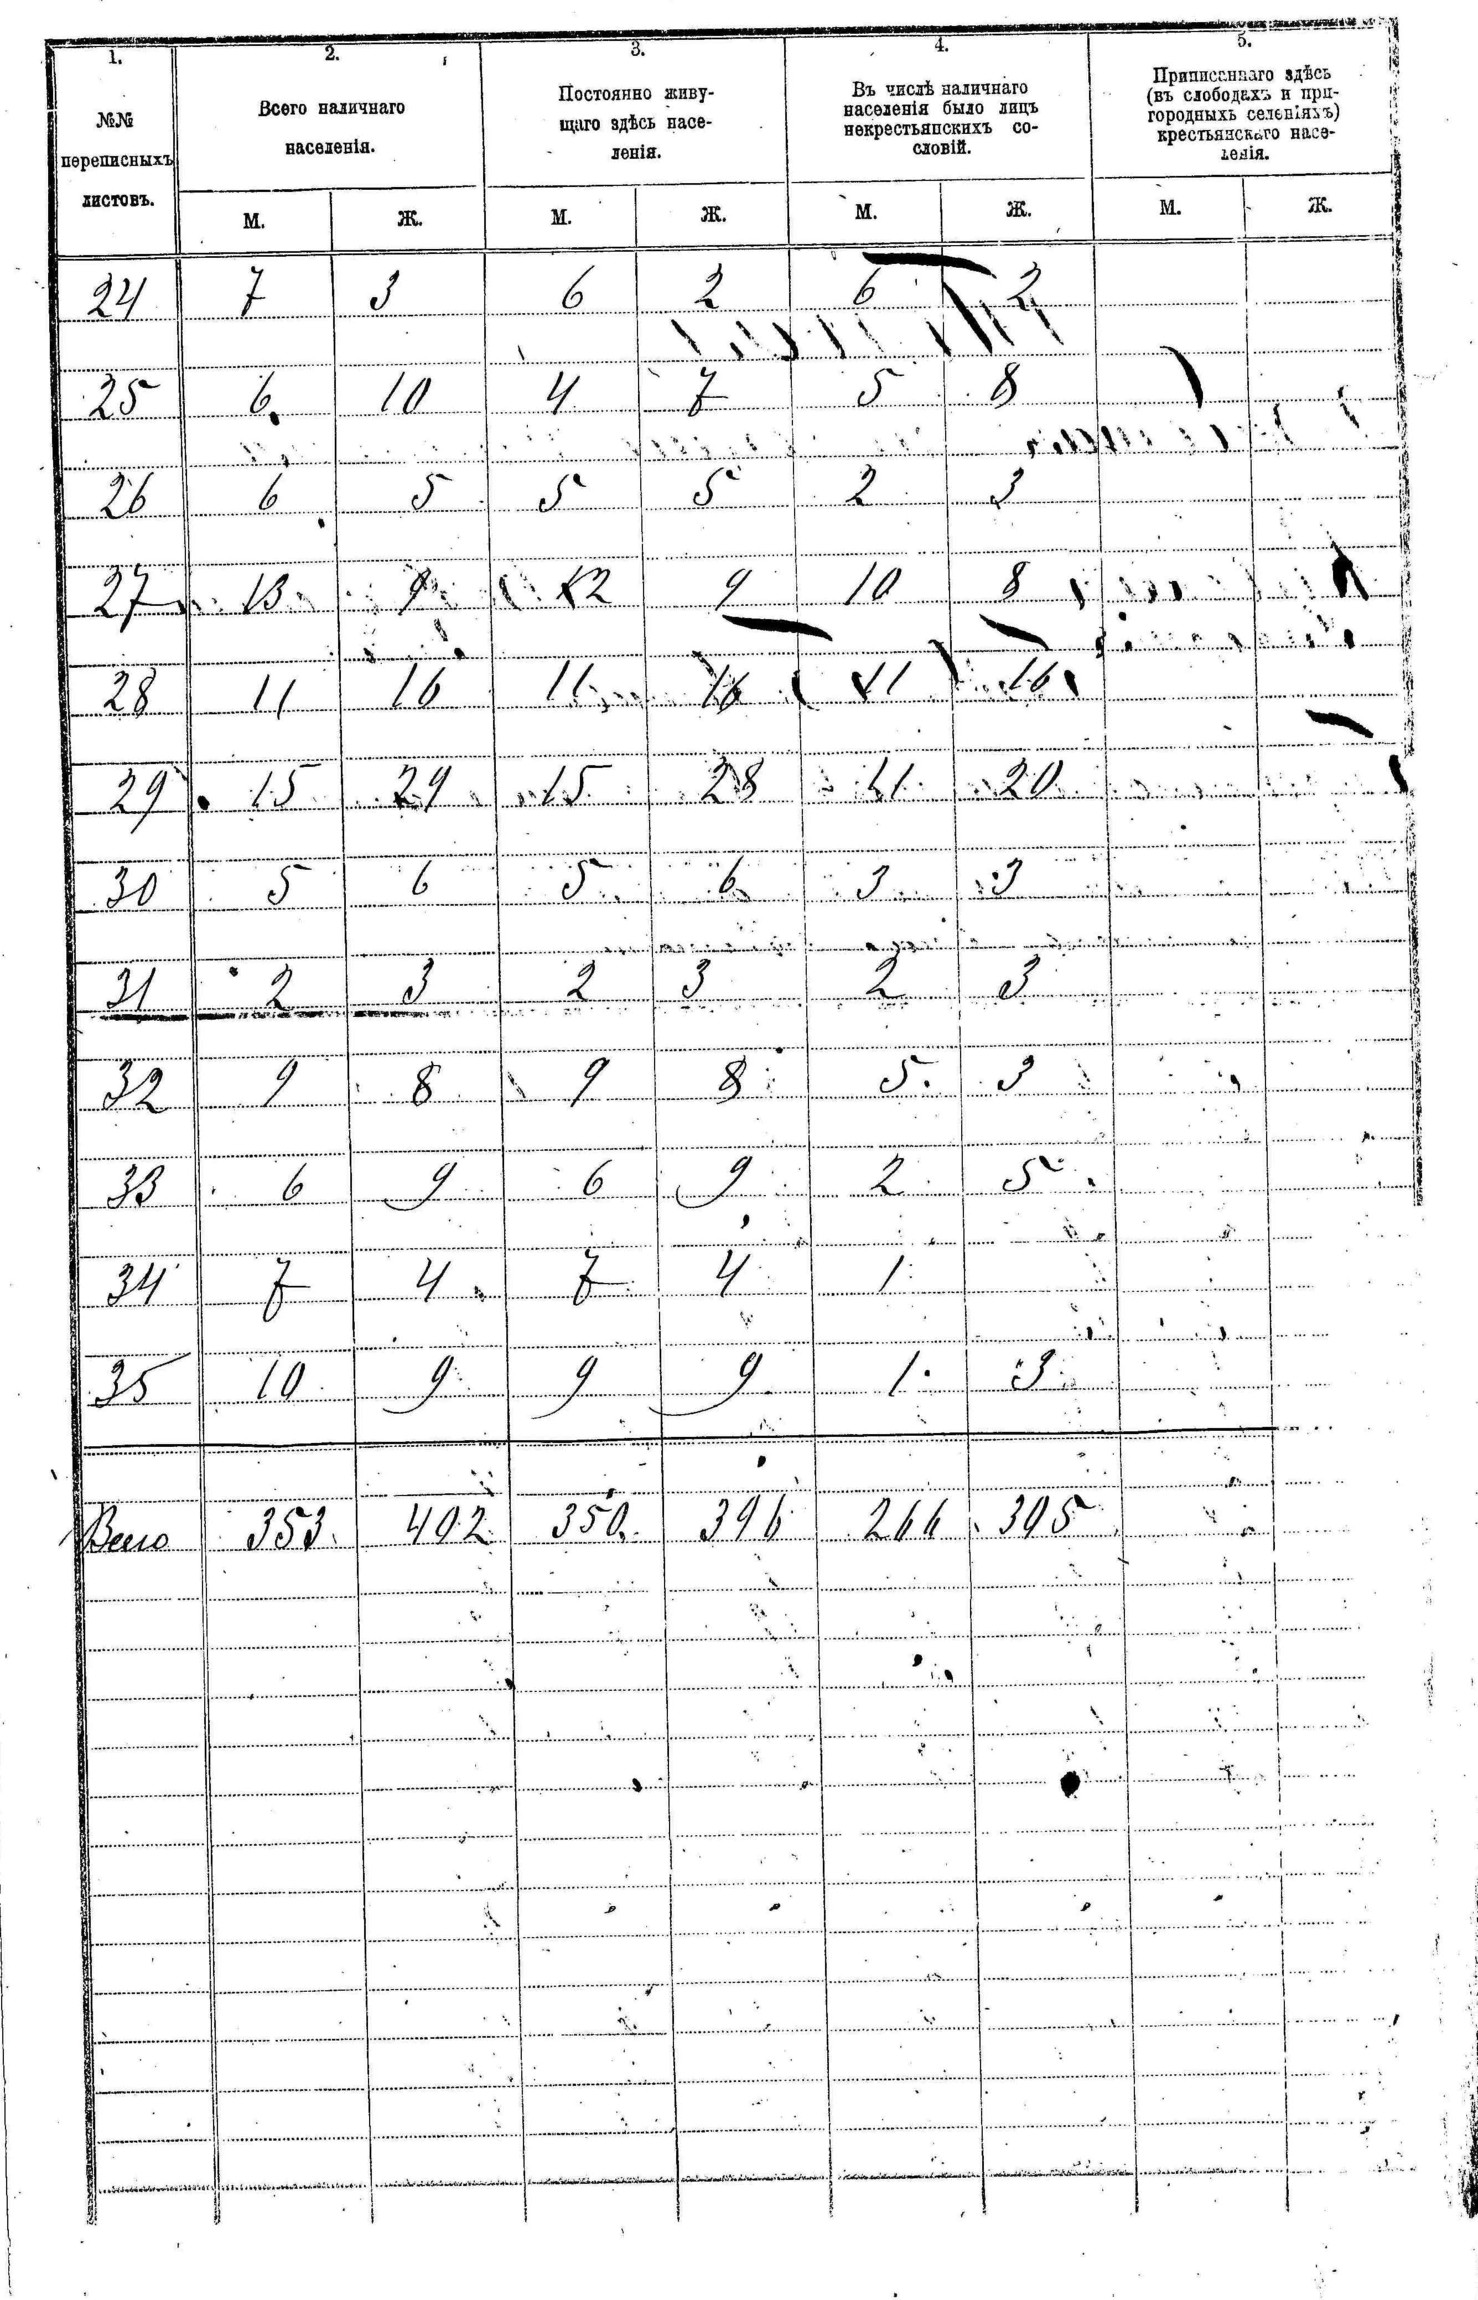 1. 2. 3. 4. 5.
№№ переписныхъ листовъ.
Всего наличнаго населенія.
Постоянно живущаго здѣсь населенія.
Въ числѣ наличнаго населенія было лицъ некрестьянскихъ сословій.
Приписаннаго здѣсь (въ слободахъ и пригородныхъ селеніяхъ) крестьянскаго населенія.
М. Ж. М. Ж. М. Ж. М. Ж.
24 7 3 6 2 6 2
25 6 10 4 7 5 8
26 6 5 5 5 2 3
27 13 9 12 9 10 8
28 11 16 11 16 11 16
29 15 29 15 28 11 20
30 5 6 5 6 3 3
31 2 3 2 3 2 3
32 9 8 9 8 5 3
33 6 9 6 9 2 5
34 7 4 7 4 1
35 10 9 9 9 1 3
Всего 353 402 350 396 266 305